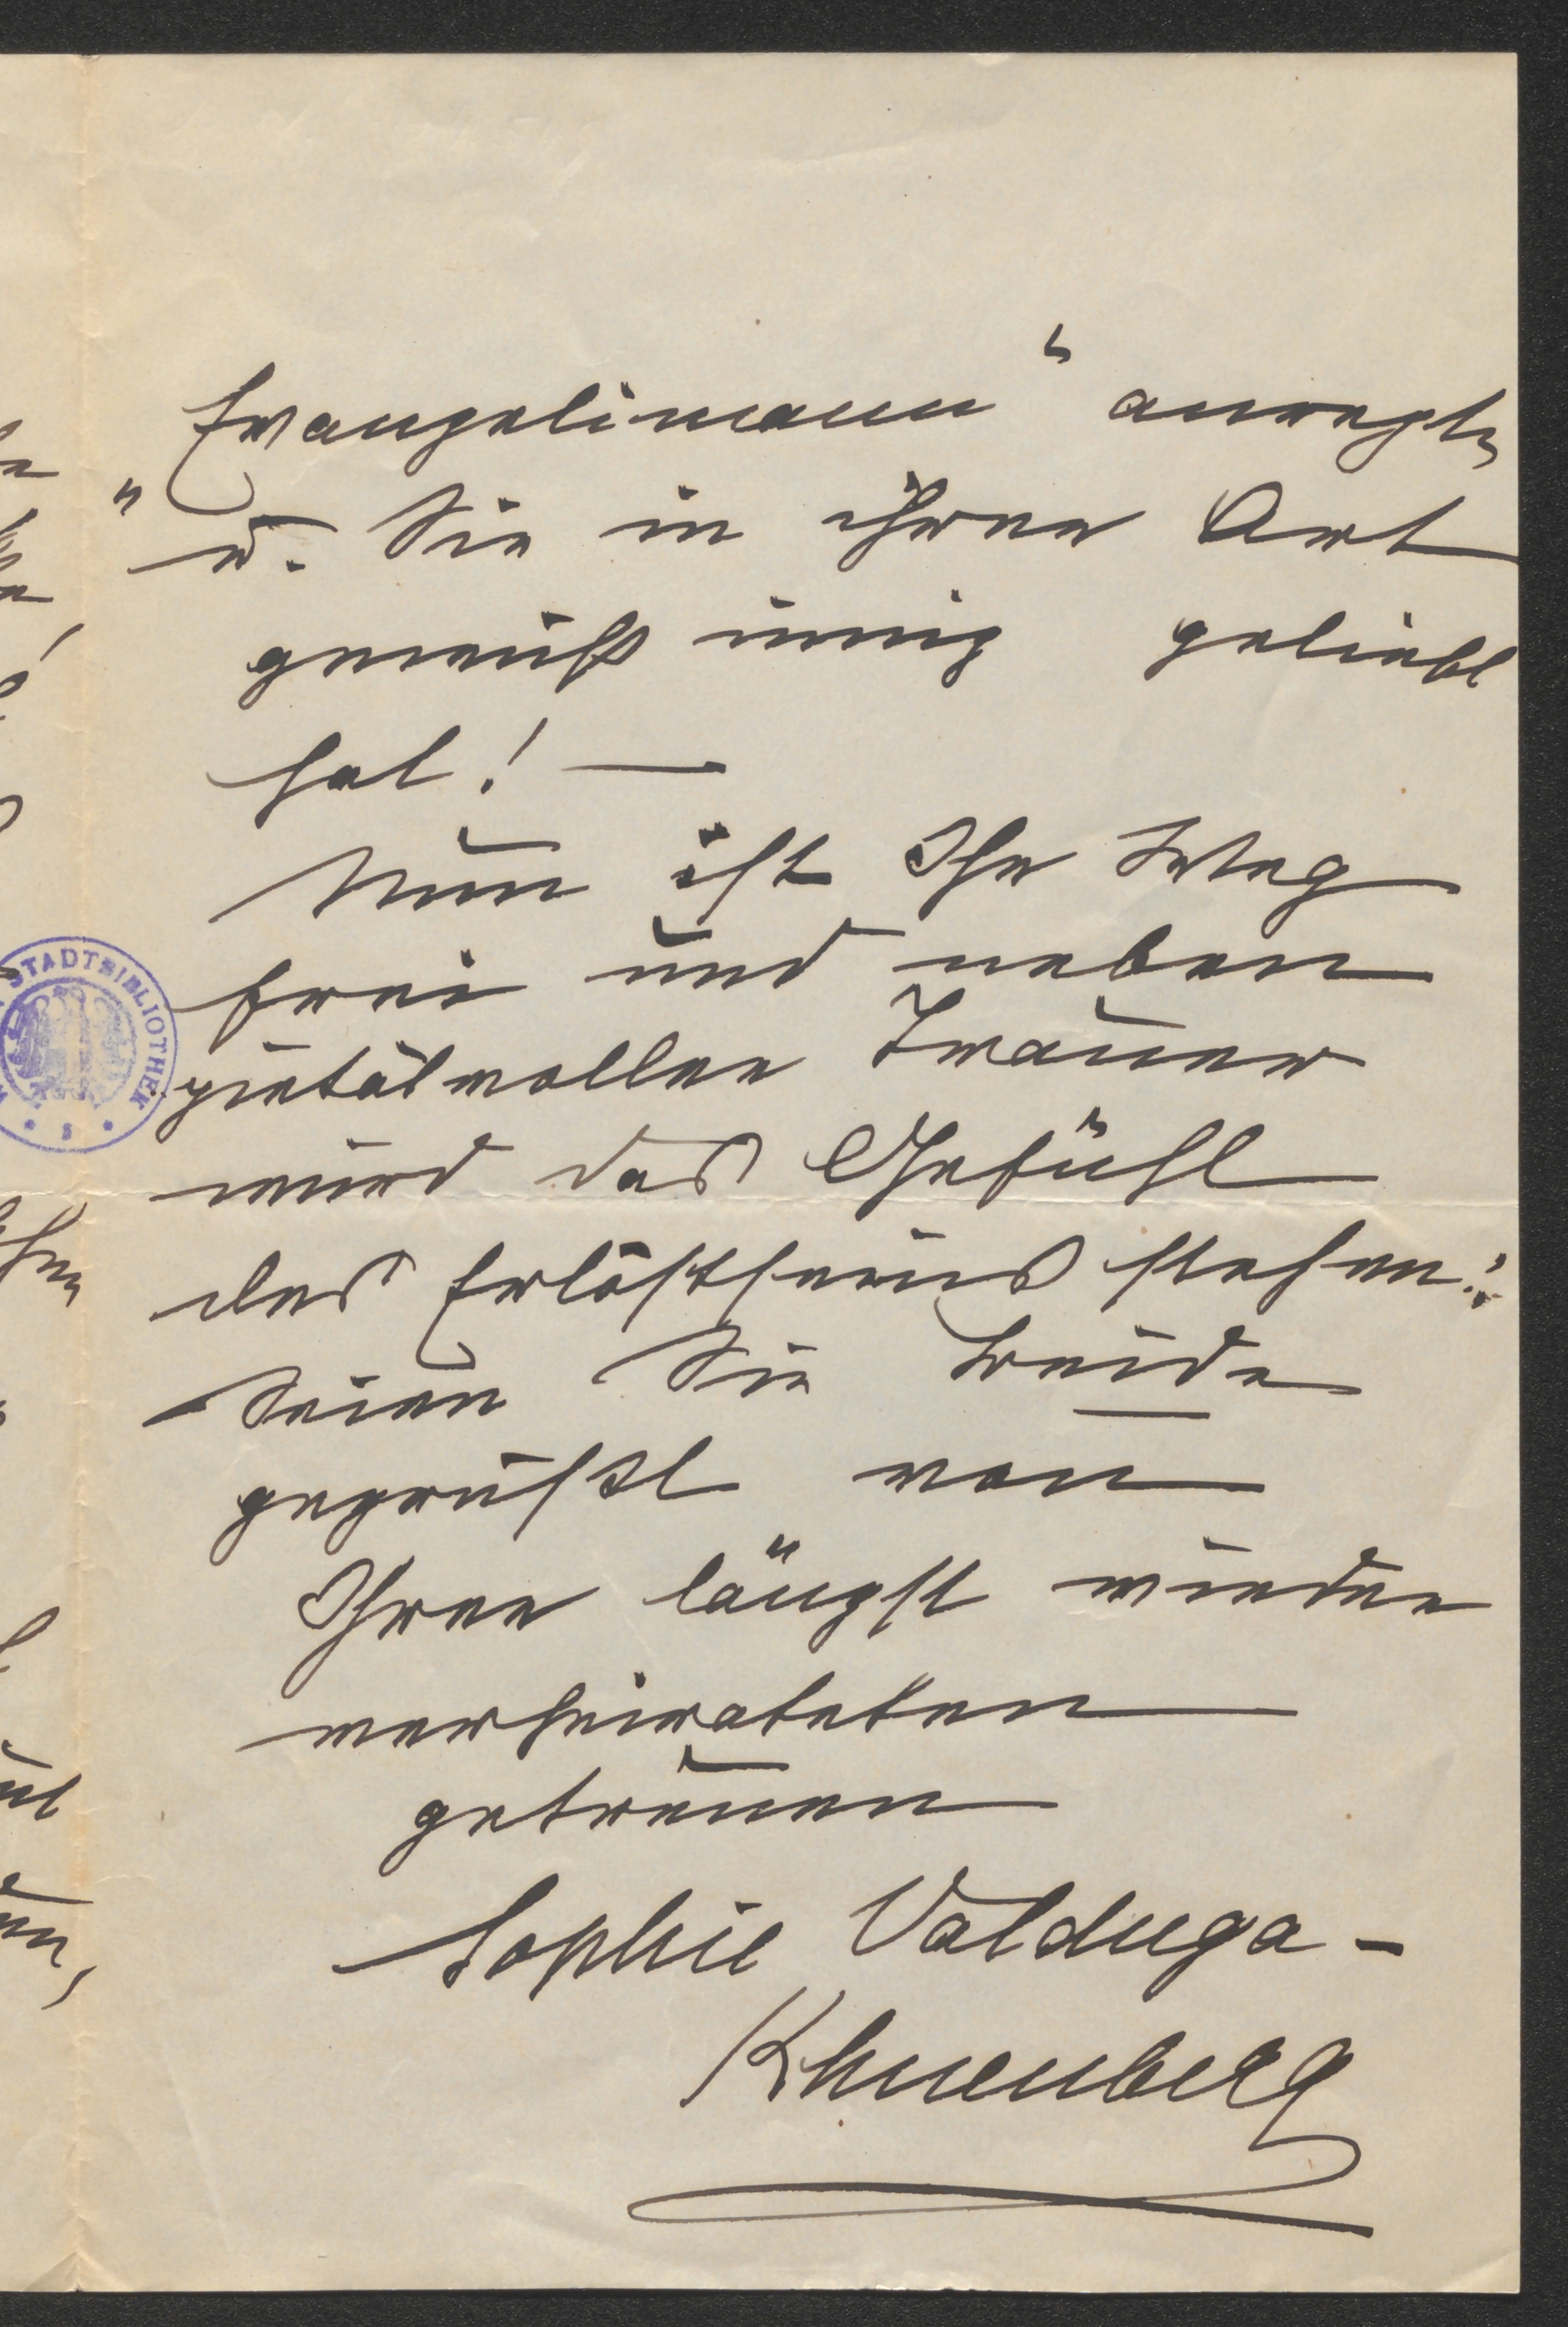 „Evangelimann" anregte,
u. Sie in ihrer Art
gewiß innig geliebt
hat! —
Nun ist Ihr Weg
frei und neben
pietätvoller Trauer
wird das Gefühl
des Erlöstseins stehen:
Seien Sie beide
gegrüßt von
Ihrer längst wieder
verheirateten
getreuen
Sophie Valduga-
Khuenberg
STADTBIBLIOTHEK